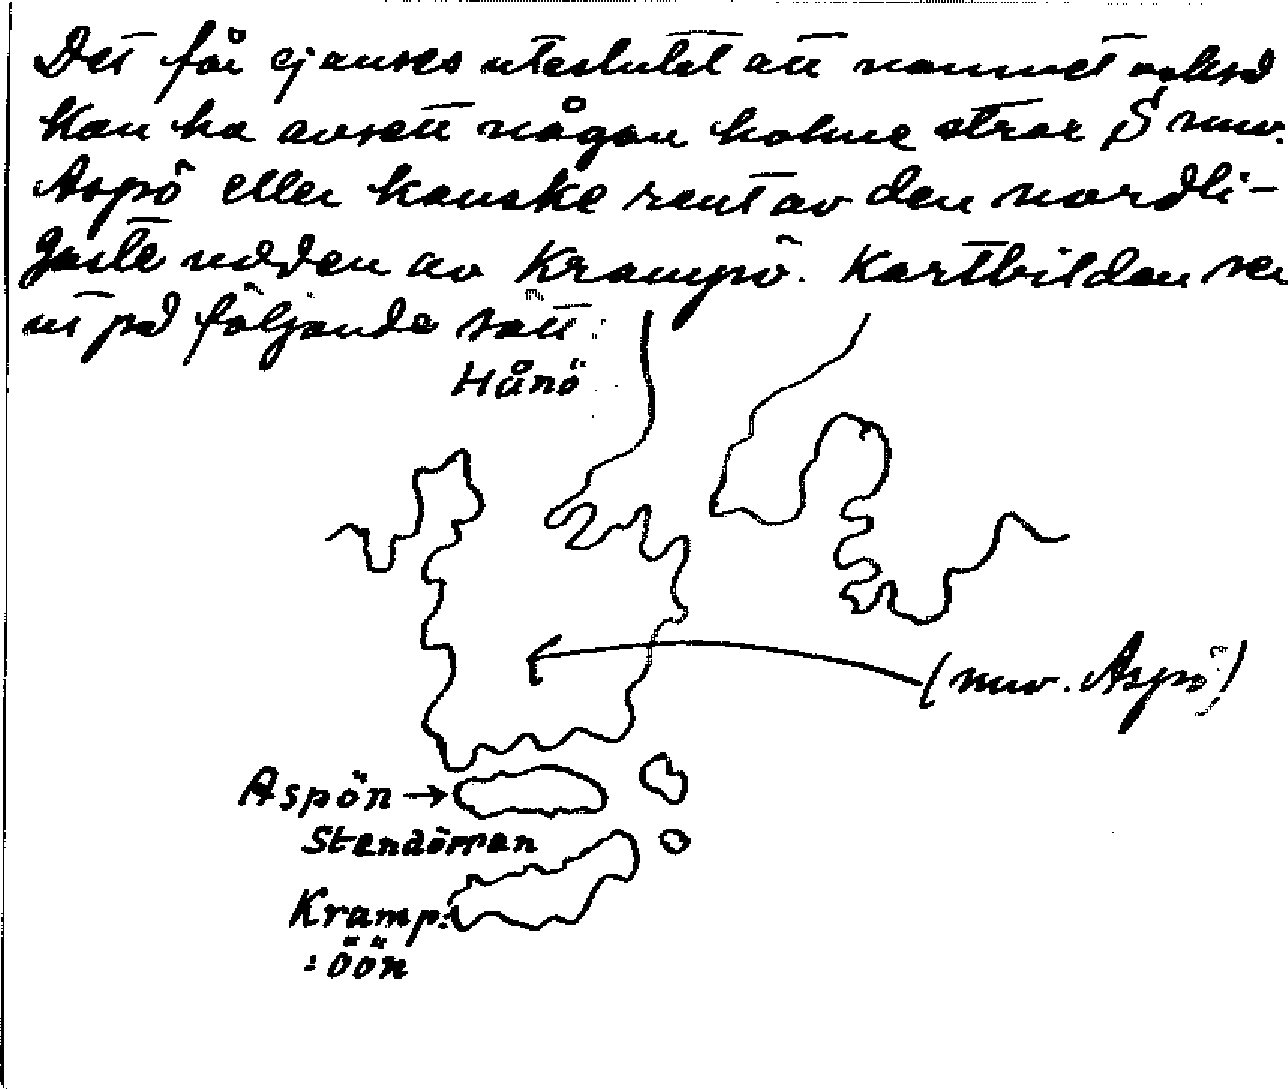 Det får ej anses uteslutet att namnet också
kan ha avsett någon holme strax S nuv.
Aspö eller kanske rent av den nordli-
gaste udden av Krampö. Kartbilden ser
ut på följande sätt:
Hånö
(nuv. Aspö)
Aspön →
Stendörren
Kramp:
:öön